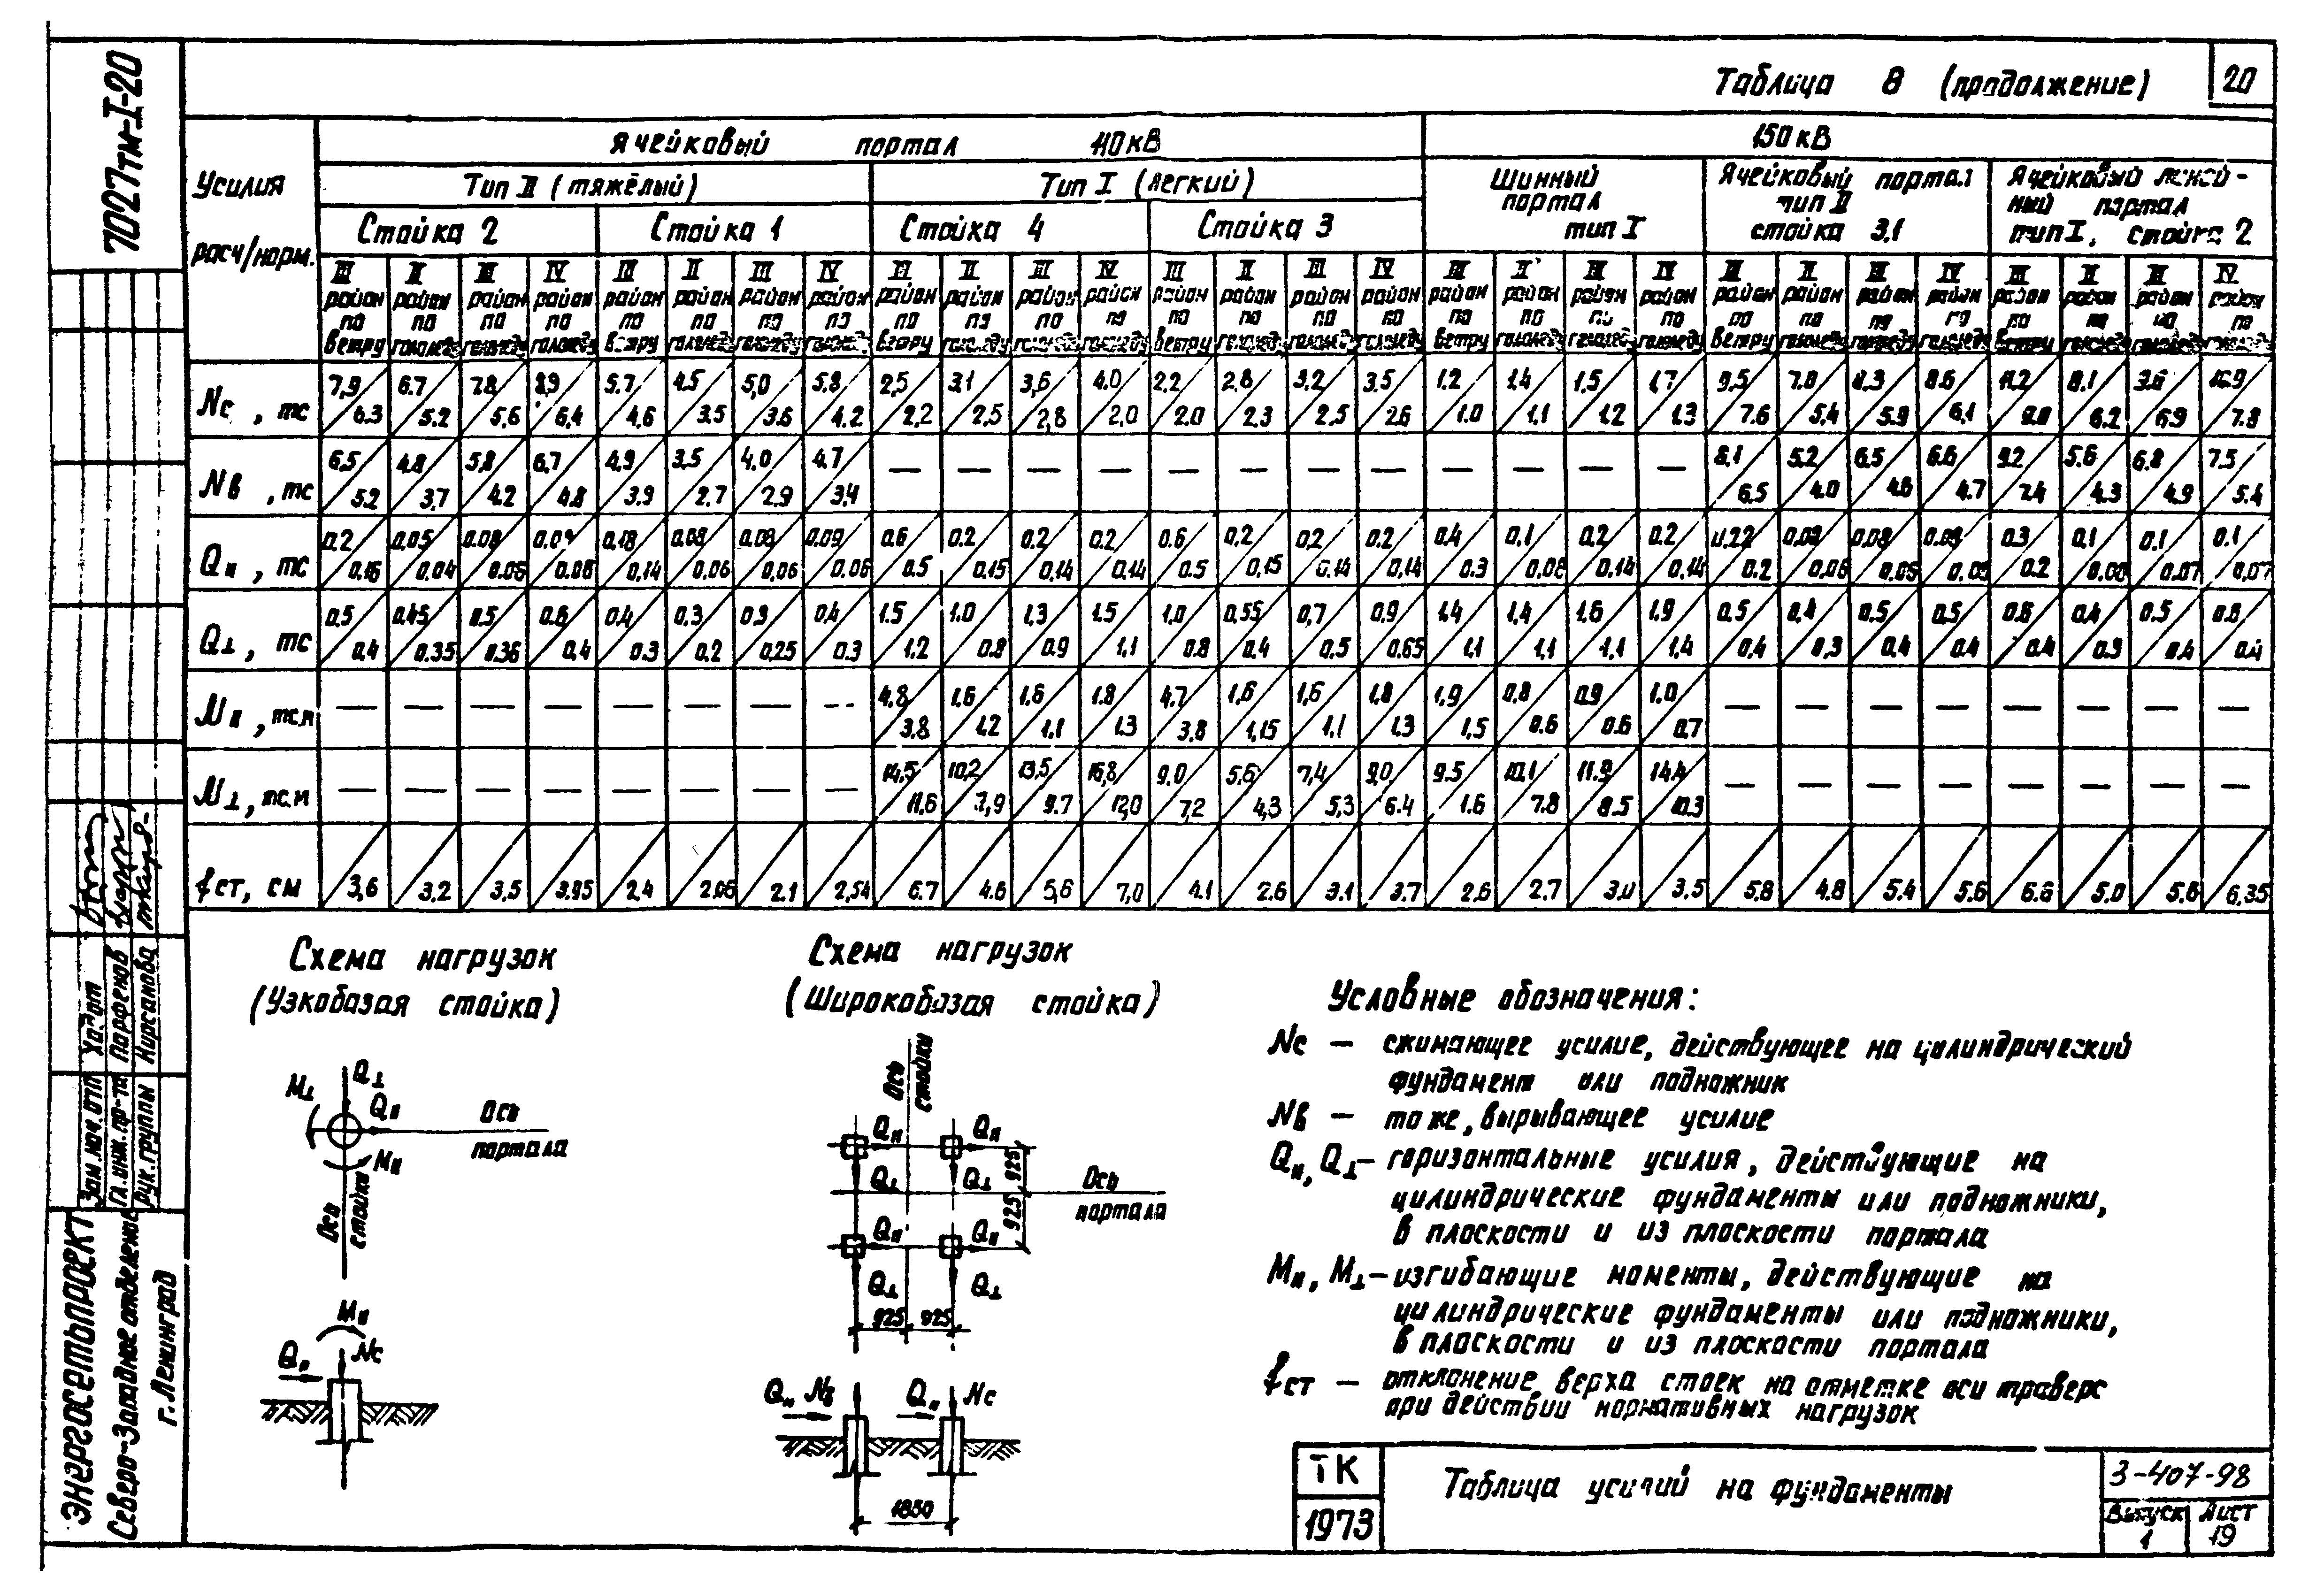 7027тм-I-20
Таблица 8 (продолжение)
20
Усилия расч/норм.
Ячейковый портал 110 кВ
150 кВ
Тип II (тяжёлый)
Тип I (легкий)
Шинный портал тип I
Ячейковый портал тип II стойка 3.1
Ячейковый линей-
ный портал
тип I, стойка 2
Стойка 2
Стойка 1
Стойка 4
Стойка 3
III район по ветру
II район по гололеду
III район по гололеду
IV район по гололеду
III район по ветру
II район по гололеду
III район по гололеду
IV район по гололеду
III район по ветру
II район по гололеду
III район по гололеду
IV район по гололеду
III район по ветру
II район по гололеду
III район по гололеду
IV район по гололеду
III район по ветру
II район по гололеду
III район по гололеду
IV район по гололеду
III район по ветру
II район по гололеду
III район по гололеду
IV район по гололеду
III район по ветру
II район по гололеду
III район по гололеду
IV район по гололеду
Nс, тс 7,9/6.3 6.7/5.2 7.8/5,6 8,9/6,4 5.7/4,6 4.5/3.5 5,0/3.6 5.8/4.2 2,5/2,2 3.1/2,5 3,6/2,8 4.0/2,0 2.2/2.0 2,8/2.3 3.2/2.5 3.5/2.6 1.2/1.0 1.4/1.1 1,5/1.2 1,7/1.3 9,5/7.6 7.0/5,4 8.3/5.9 8.6/6,1 11.2/9.0 8.1/6.2 /6.9 /7.8
Nв, тс 6,5/5.2 4.8/3,7 5.8/4.2 6,7/4.8 4,9/3.9 3,5/2.7 4.0/2,9 4.7/3,4 — — — — — — — — — — — — 8.1/6,5 5.2/4.0 6,5/4.6 6.6/4.7 9.2/7.4 5.6/4.3 6.8/4.9 7.5/5.4
Qн, тс 0.2/0,16 0,05/0.04 0.08/0.06 0.09/0.06 0,18/0,14 0.08/0.06 0.08/0,06 0.09/0.06 0.6/0.5 0.2/0,15 0.2/0,14 0.2/0.14 0.6/0.5 0,2/0,15 0,2/0.14 0.2/0,14 0.4/0.3 0.1/0,08 0.2/0.14 0.2/0.14 0,22/0.2 0,08/0,06 0,08/0.05 0.08/0.05 0.3/0.2 0,1/0,08 0.1/0.07 0.1/0,07
Q⊥, тс 0.5/0,4 0,45/0.35 0.5/0.36 0.6/0,4 0.4/0.3 0.3/0.2 0.3/0.25 0,4/0.3 1.5/1.2 1.0/0.8 1,3/0.9 1.5/1,1 1,0/0.8 0,55/0.4 0,7/0.5 0,9/0.65 1.4/1.1 1,4/1,1 1.6/1.1 1.9/1,4 0,5/0,4 0,4/0,3 0,5/0,4 0,5/0.4 0.6/0.4 0,4/0.3 0.5/0.4 0.6/0,4
Mн, тс.м — — — — — — — — 4.8/3.8 1.6/1.2 1.6/1,1 1.8/1.3 4.7/3,8 1,6/1,15 1,6/1.1 1,8/1.3 1,9/1,5 0,8/0.6 0.9/0.6 1,0/0,7 — — — — — — — —
M⊥, тс.м — — — — — — — — 14,5/11,6 10,2/7,9 13,5/9.7 16,8/12,0 9.0/7,2 5,6/4,3 7,4/5,3 9,0/6.4 9.5/1.6 10,1/7.8 11.9/8.5 14.4/10.3 — — — — — — — —
fст, см 3,6 3.2 3.5 3.95 2.4 2.05 2.1 2,54 6.7 4.6 5,6 7,0 4.1 2.6 3.1 3.7 2.6 2.7 3.0 3.5 5.8 4.8 5.4 5.6 6.6 5.0 5.6 6,35
Схема нагрузок
(Узкобазая стойка)
M⊥
Q⊥
Qн
Mн
Ось портала
Ось стойки
Mн
Nс
Qн
Схема нагрузок
(Широкобазая стойка)
Ось стойки
Qн Qн
Q⊥ Q⊥
Qн Qн
Q⊥ Q⊥
Ось портала
925 925
925 925
Qн Nв Qн Nс
1850
Условные обозначения:
Nс — сжимающее усилие, действующее на цилиндрический
фундамент или подножник
Nв — то же, вырывающее усилие
Qн, Q⊥ — горизонтальные усилия, действующие на
цилиндрические фундаменты или подножники,
в плоскости и из плоскости портала
Mн, M⊥ — изгибающие моменты, действующие на
цилиндрические фундаменты или подножники,
в плоскости и из плоскости портала
fст — отклонение верха стоек на отметке оси траверс
при действии нормативных нагрузок
ТК
1973
Таблица усилий на фундаменты
3-407-98
Выпуск 1
Лист 19
ЭНЕРГОСЕТЬПРОЕКТ
Северо-Западное отделение
г. Ленинград
Зам.нач.отп
Гл.инж.пр-та Парфенов
Рук.группы Кирсанова